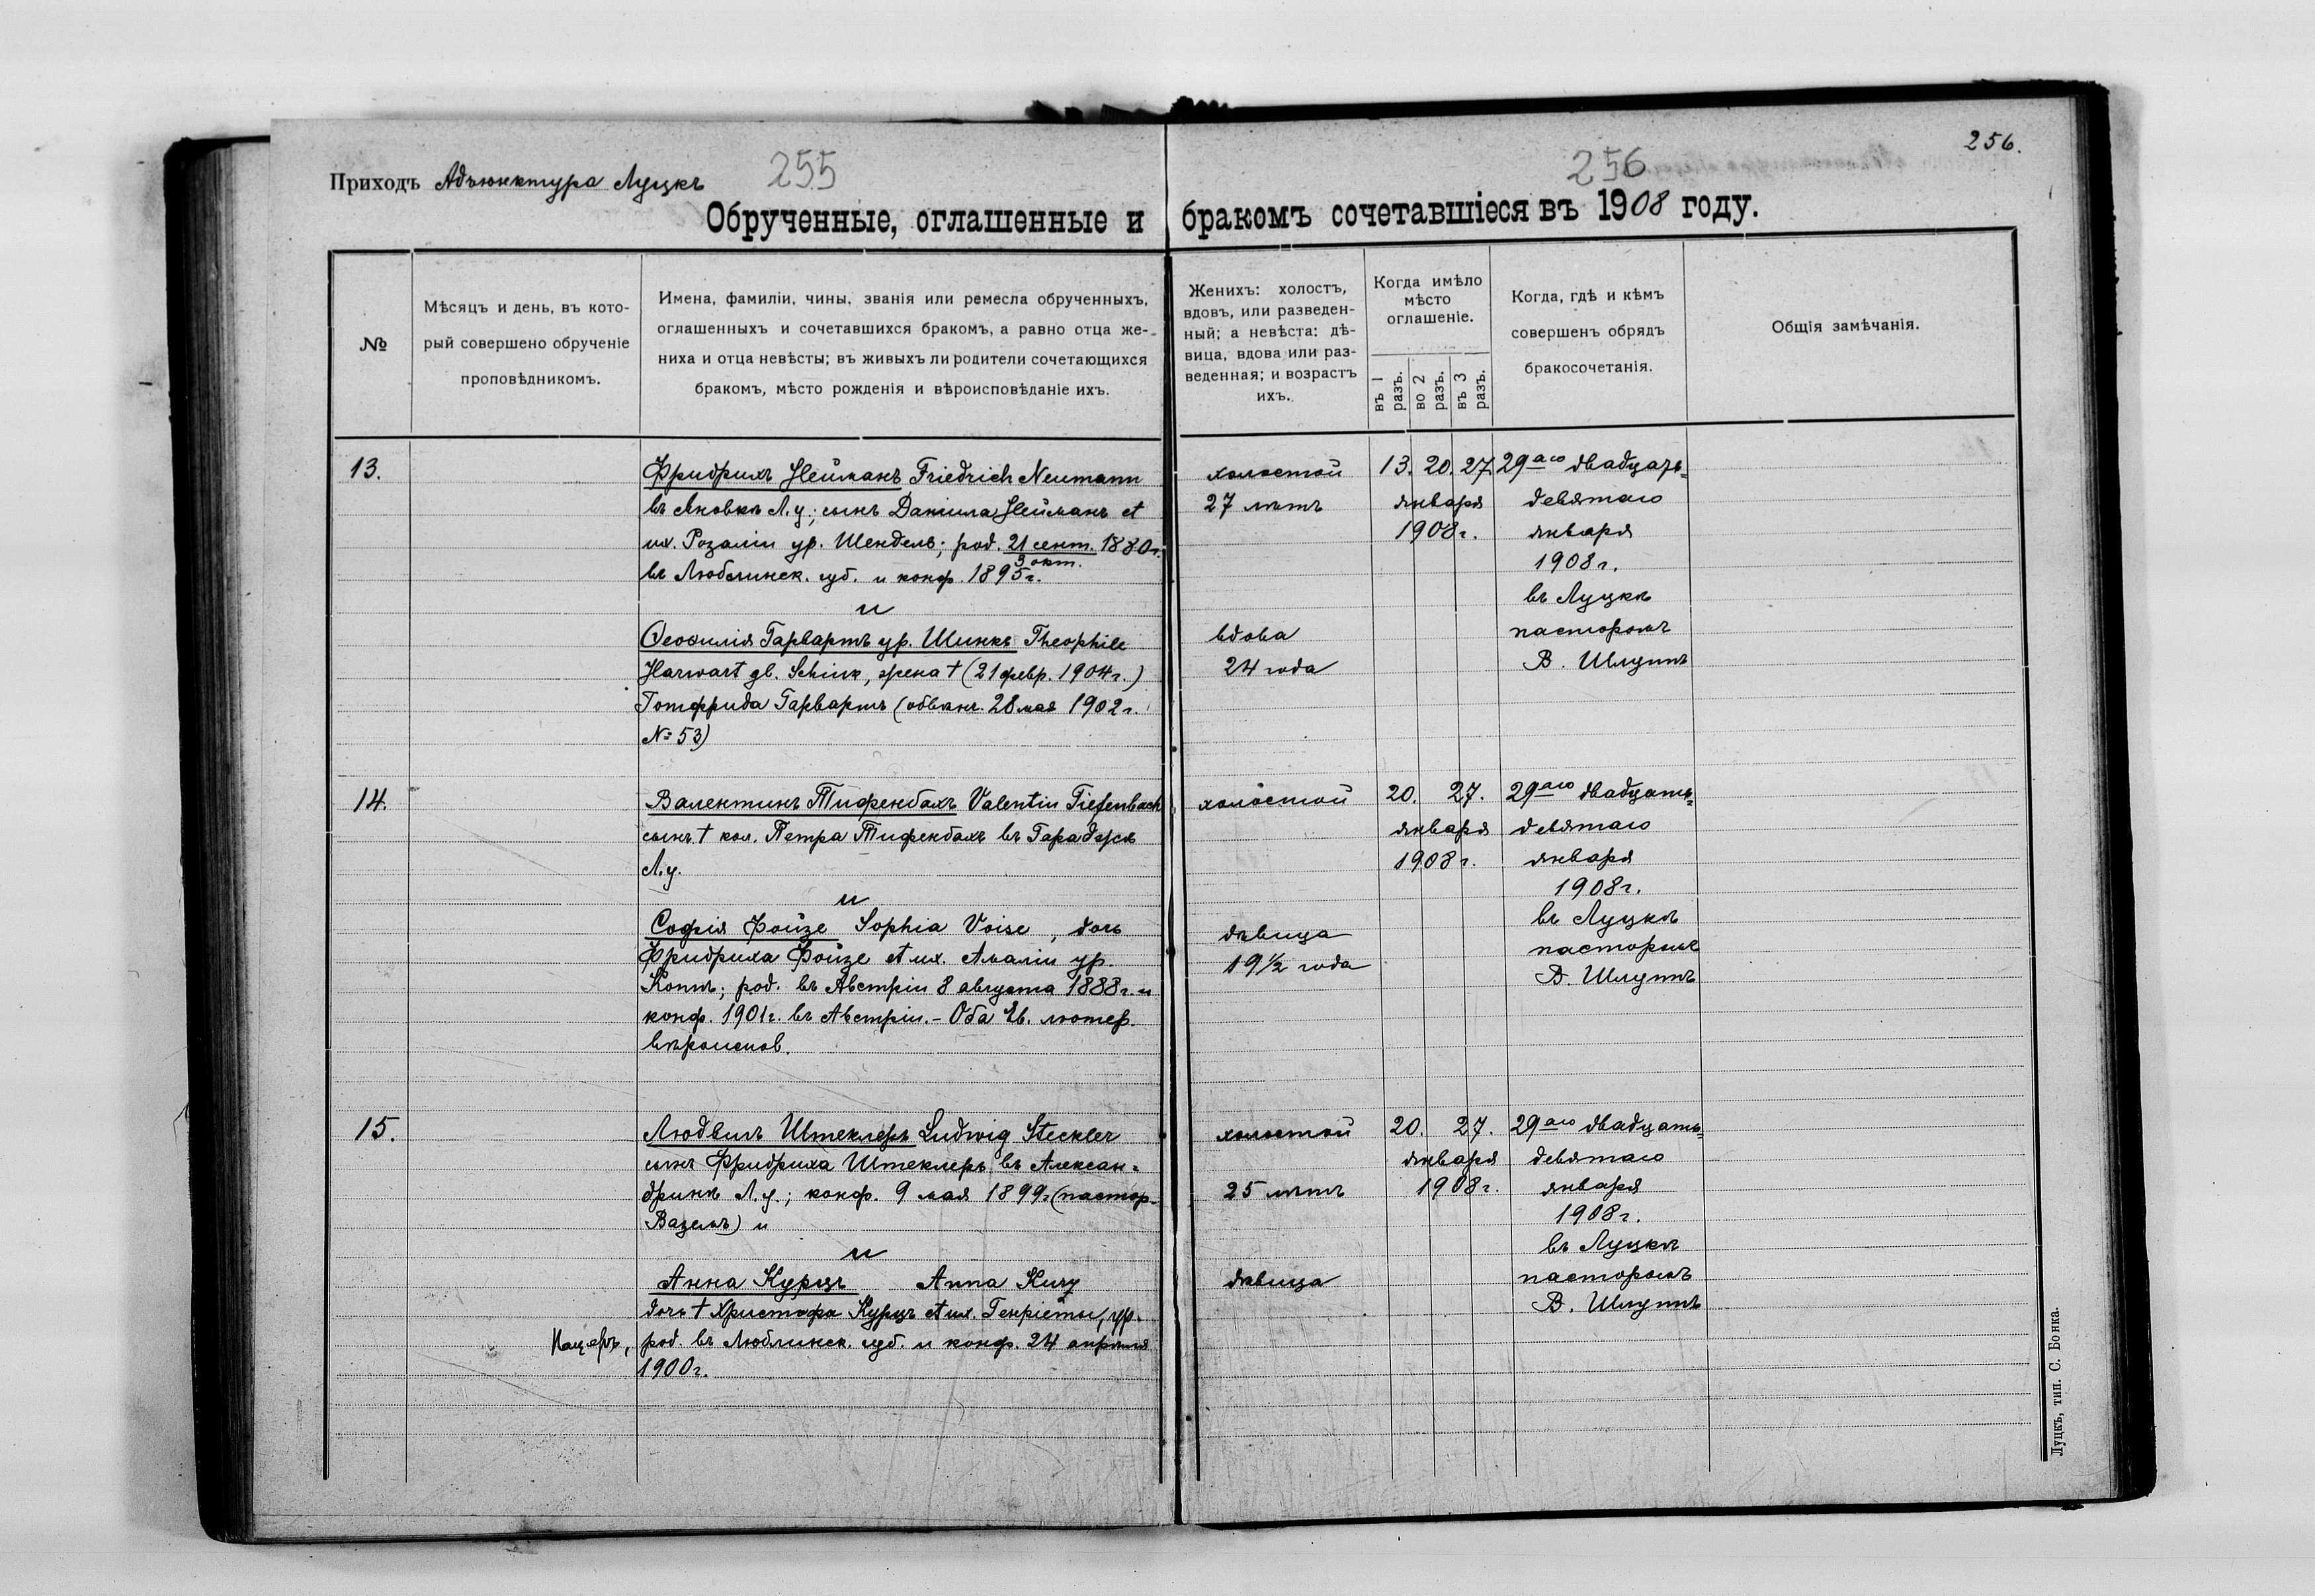 256.
Приходъ Адъюнктура Луцкъ
255
256
Обрученные, оглашенные и бракомъ сочетавшіеся въ 1908 году.
№
Мѣсяцъ и день, въ кото-
рый совершено обрученіе
проповѣдникомъ.
Имена, фамиліи, чины, званія или ремесла обрученныхъ,
оглашенныхъ и сочетавшихся бракомъ, а равно отца же-
ниха и отца невѣсты; въ живыхъ ли родители сочетающихся
бракомъ, мѣсто рожденія и вѣроисповѣданіе ихъ.
Женихъ: холостъ,
вдовъ, или разведен-
ный; а невѣста: дѣ-
вица, вдова или раз-
веденная; и возрастъ
ихъ.
Когда имѣло
мѣсто
оглашеніе.
въ 1 разъ.
во 2 разъ.
въ 3 разъ.
Когда, гдѣ и кѣмъ
совершенъ обрядъ
бракосочетанія.
Общія замѣчанія.
13.
Фридрихъ Нейманъ Friedrich Neumann
въ Яновкѣ Л.у.; сынъ Даніила Нейманъ et
ux. Розаліи ур. Шендель; род. 21 сент. 1880г.
3 окт.
въ Люблинск. губ. и конф. 1895г.
и
Ѳеофилія Гарвартъ ур. Шинкъ Theophile
Harwart gb. Schink, жена † (21 февр. 1904г.)
Готфрида Гарвартъ (обвѣнч. 28 мая 1902г.
№ 53)
холостой
27 лѣтъ
вдова
24 года
13. 20. 27.
января
1908г.
29аго двадцать-
девятаго
января
1908г.
въ Луцкѣ
пасторомъ
В. Шлуппъ
14.
Валентинъ Тифенбахъ Valentin Tiefenbach
сынъ † кол. Петра Тифенбахъ въ Гараджѣ
Л.у.
и
Софія Фойзе Sophia Voise, дочь
Фридриха Фойзе et ux. Амаліи ур.
Коппъ; род. въ Австріи 8 августа 1888г. и
конф. 1901г. въ Австріи. - Оба Ев. лютер.
вѣроиспов.
холостой
дѣвица
19½ года
20. 27.
января
1908г.
29аго двадцать-
девятаго
января
1908г.
въ Луцкѣ
пасторомъ
В. Шлуппъ
15.
Людвигъ Штеклеръ Ludwig Steckler
сынъ Фридриха Штеклеръ въ Алексан-
дринѣ Л.у.; конф. 9 мая 1899г. (пастор.
Ваземъ) и
и
Анна Курцъ Anna Kurz
дочь † Христофа Курцъ et ux. Генріеты, ур.
Пацеръ, род. въ Люблинск. губ. и конф. 24 апрѣля
1900г.
холостой
25 лѣтъ
дѣвица
20. 27.
января
1908г.
29аго двадцать-
девятаго
января
1908г.
въ Луцкѣ
пасторомъ
В. Шлуппъ
Луцкъ, тип. С. Бонка.